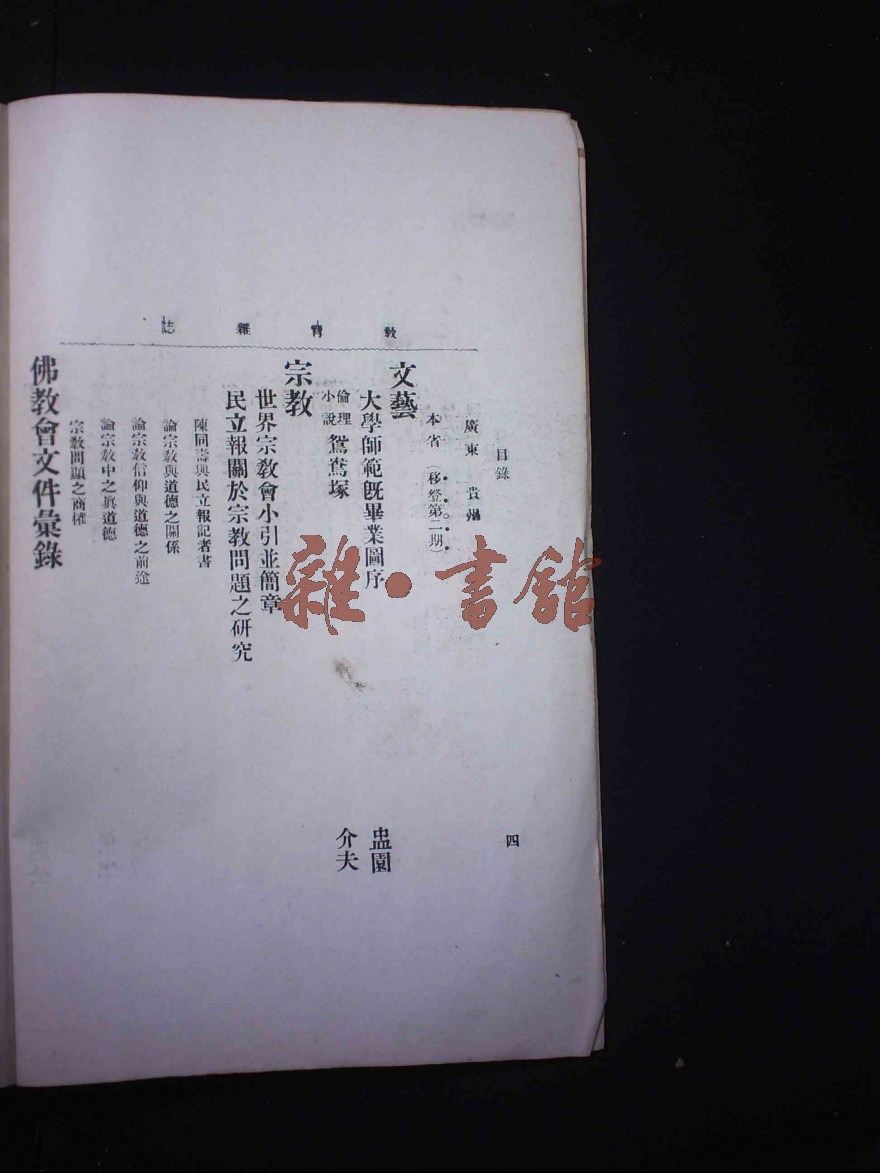 教育雜誌
目錄
四
廣東 貴州
本省（移登第二期）
文藝
大學師範旣畢業圖序 蛊園
倫理小說 鴛鴦塚 介夫
宗教
世界宗教會小引並簡章
民立報關於宗教問題之研究
陳同濤與民立報記者書
論宗敎與道德之關係
論宗敎信仰與道德之前途
論宗敎中之眞道德
宗敎問題之商榷
佛教會文件彙錄
雜·書館